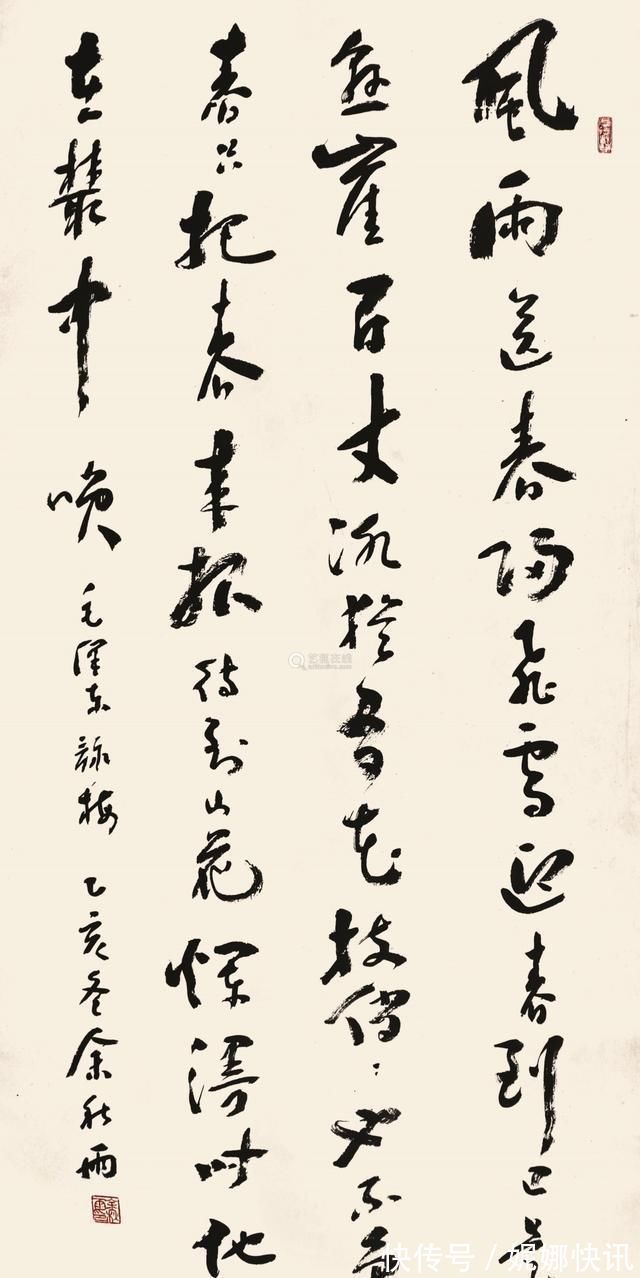 風雨送春歸飛雪迎春到已是
懸崖百丈冰猶有花枝俏々也不爭
春只把春來報待到山花爛漫時他
在叢中咲
毛澤東詠梅 乙亥冬 余秋雨
艺狐在线
快传号 / 妮娜快讯